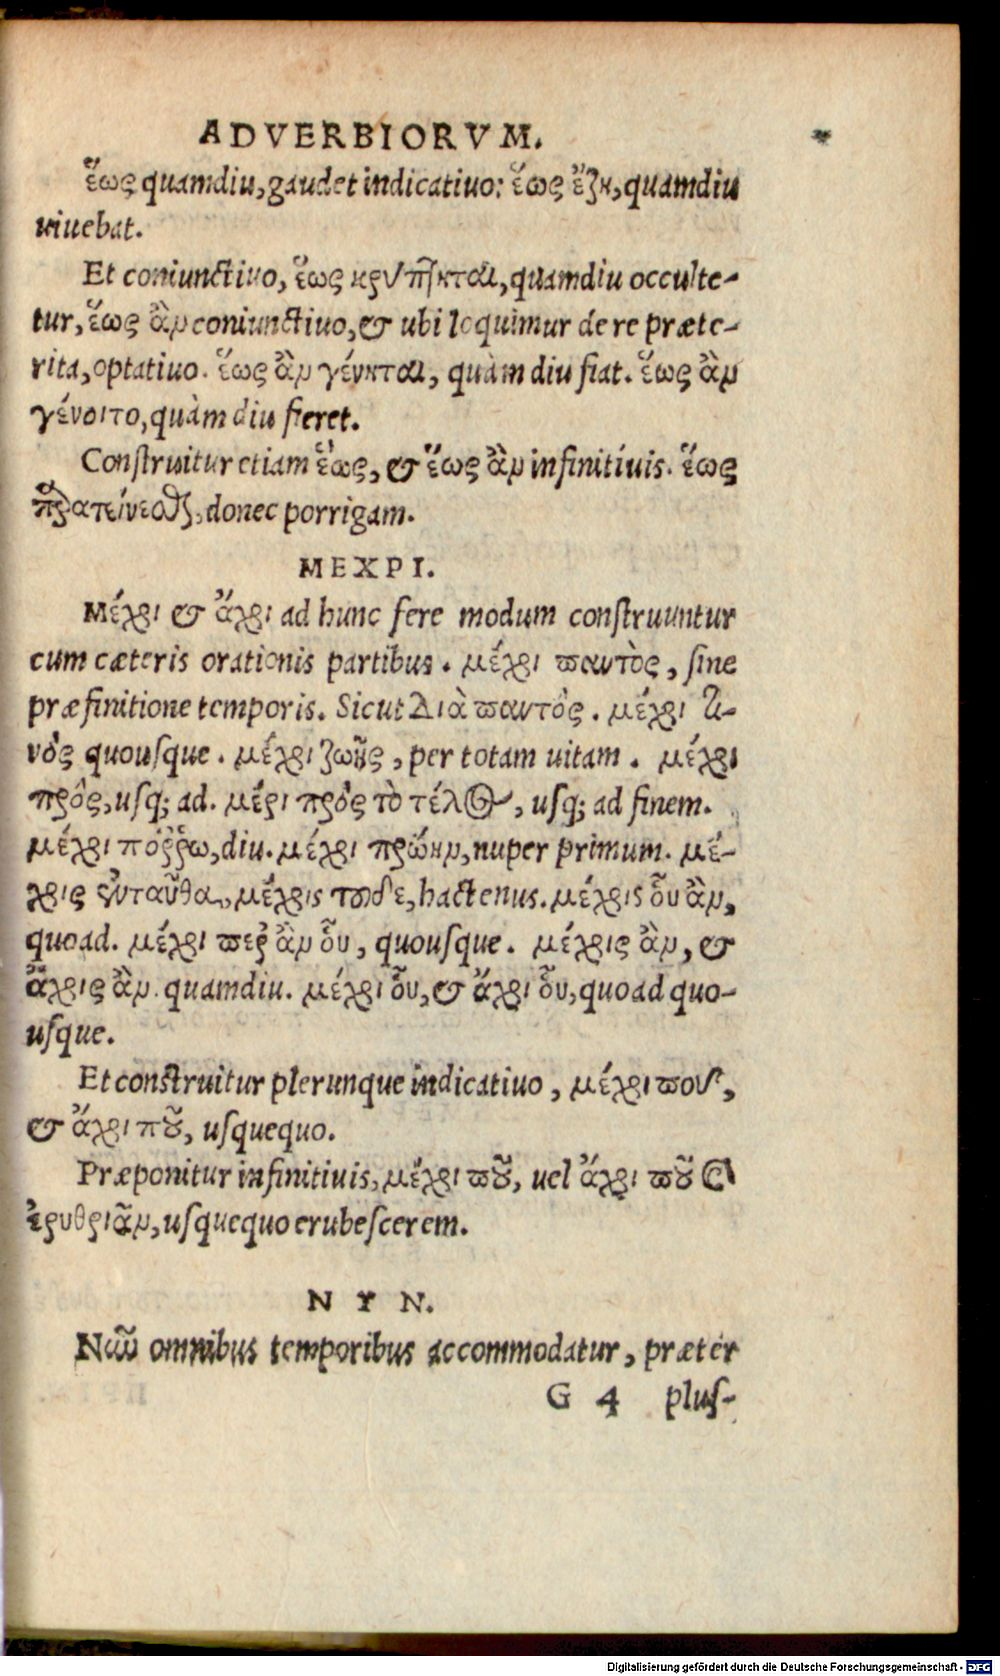 ADVERBIORVM.
ἕως quamdiu, gaudet indicatiuo: ἕως ἔζη, quamdiu
uiuebat.
Et coniunctiuo, ἕως κρύπτηται, quamdiu occulte-
tur, ἕως ἂν coniunctiuo, & ubi loquimur de re præte-
rita, optatiuo. ἕως ἂν γένηται, quàm diu fiat. ἕως ἂν
γένοιτο, quàm diu fieret.
Construitur etiam ἕως, & ἕως ἂν infinitiuis. ἕως
donec porrigam.
ΜΕΧΡΙ.
Μέχρι & ἄχρι ad hunc fere modum construuntur
cum cæteris orationis partibus. μέχρι παντὸς, sine
præfinitione temporis. Sicut Διὰ παντὸς. μέχρι τι-
νὸς quousque. μέχρι ζωῆς, per totam uitam. μέχρι
πρὸς, usq; ad. μέρι πρὸς τὸ τέλος, usq; ad finem.
μέχρι πόῤῥω, diu. μέχρι πρώην, nuper primum. μέ-
χρις ἐνταῦθα, μέχρις τοῦδε, hactenus. μέχρις οὗ ἂν,
quoad. μέχρι περ ἂν οὗ, quousque. μέχρις ἂν, &
ἄχρις ἂν. quamdiu. μέχρι οὗ, & ἄχρι οὗ, quoad quo-
usque.
Et construitur plerunque indicatiuo, μέχρι που,
& ἄχρι ποῦ, usquequo.
Præponitur infinitiuis, μέχρι ποῦ, uel ἄχρι ποῦ
ἐρυθριᾶν, usquequo erubescerem.
ΝΥΝ.
Νῦν omnibus temporibus accommodatur, præter
G 4 plus-
Digitalisierung gefördert durch die Deutsche Forschungsgemeinschaft - DFG